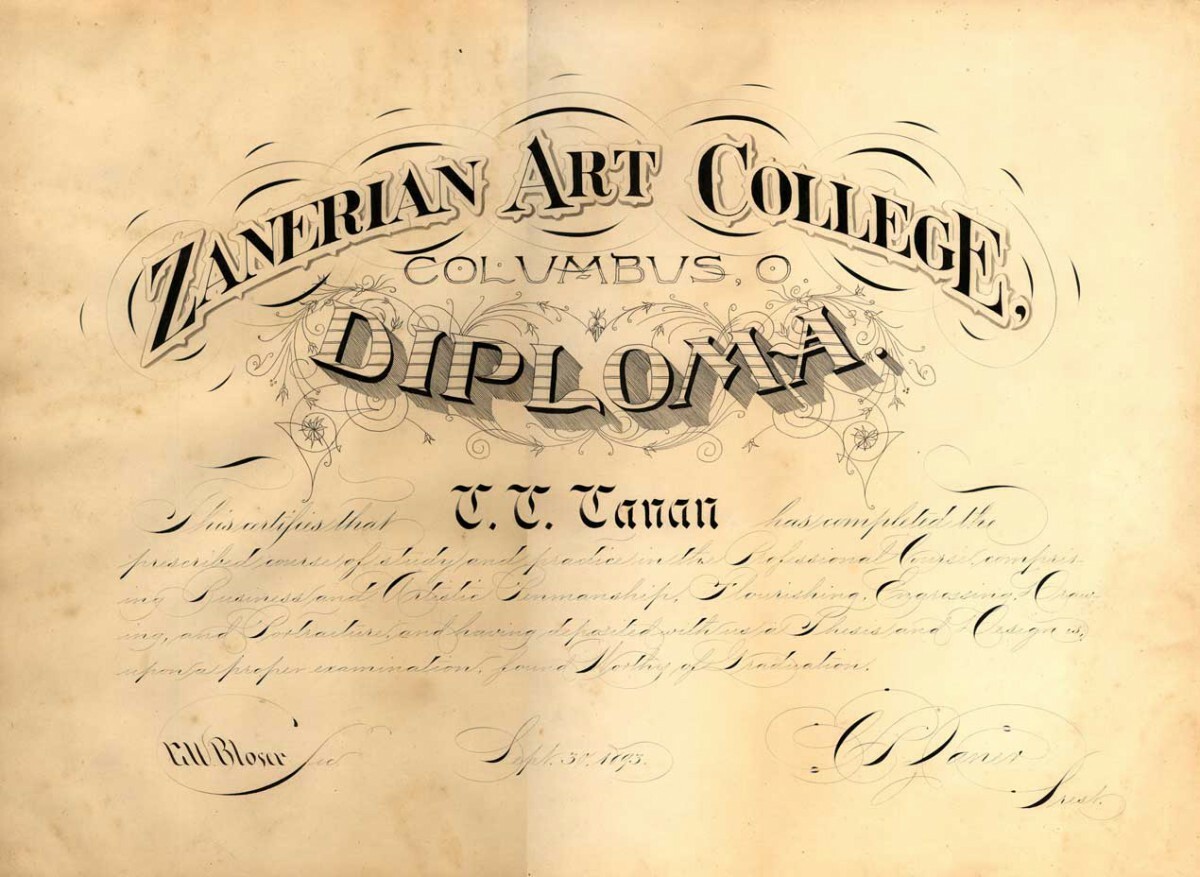 ZANERIAN ART COLLEGE,
COLUMBUS, O.
DIPLOMA.
This certifies that T. T. Tanan has completed the
prescribed course of study and practice in the Professional Course, compris-
ing Business and Artistic Penmanship, Flourishing, Engrossing, Draw-
ing, and Portraiture, and having deposited with us a Thesis and Design is,
upon a proper examination, found Worthy of Graduation.
E.W. Bloser Sec. Sept. 30, 1893. C P Zaner
Prest.